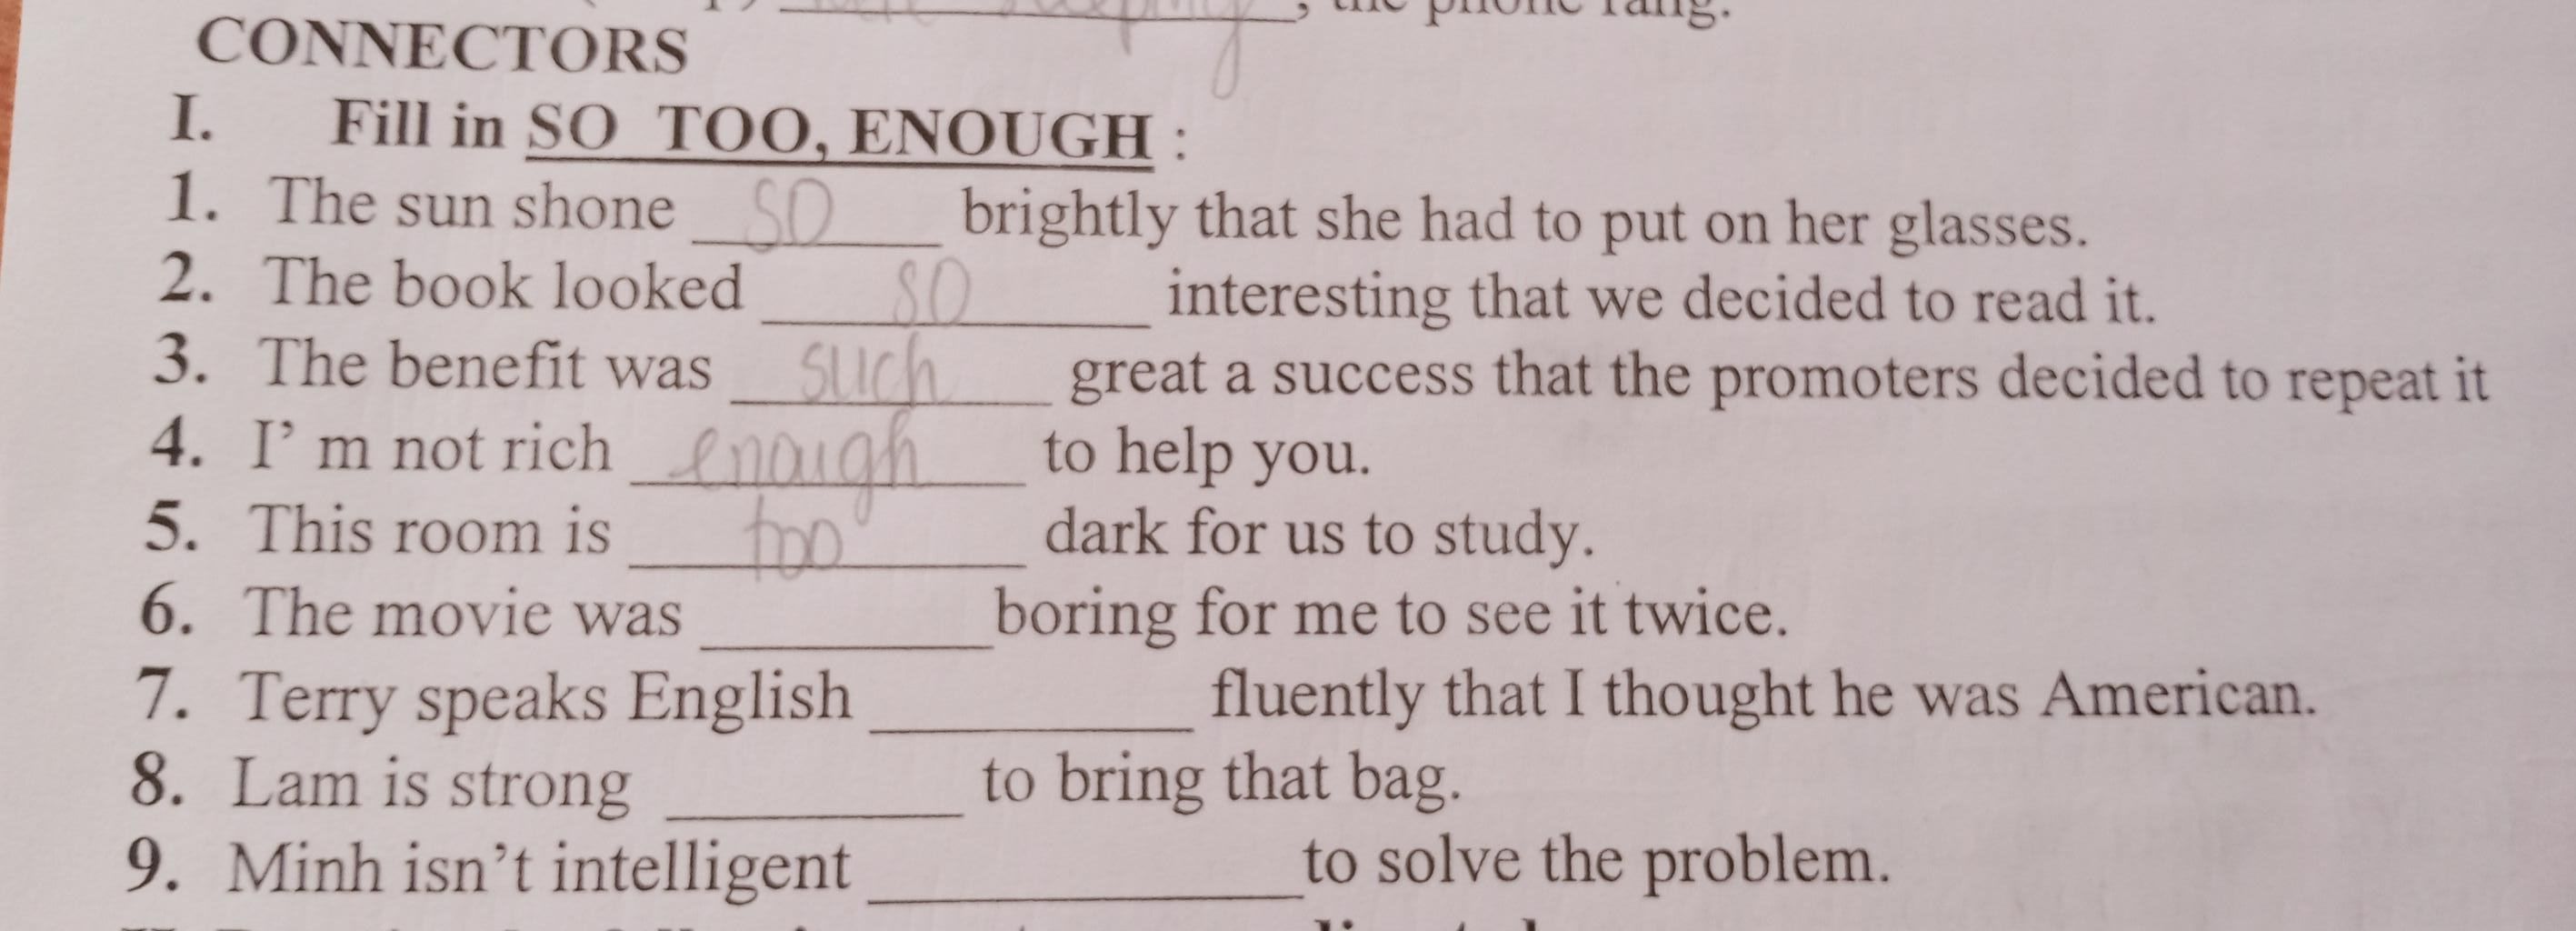 , the phone rang.
CONNECTORS
I. Fill in SO TOO, ENOUGH :
1. The sun shone so brightly that she had to put on her glasses.
2. The book looked so interesting that we decided to read it.
3. The benefit was such great a success that the promoters decided to repeat it
4. I’ m not rich enough to help you.
5. This room is too dark for us to study.
6. The movie was ________ boring for me to see it twice.
7. Terry speaks English ________ fluently that I thought he was American.
8. Lam is strong ________ to bring that bag.
9. Minh isn’t intelligent ________ to solve the problem.